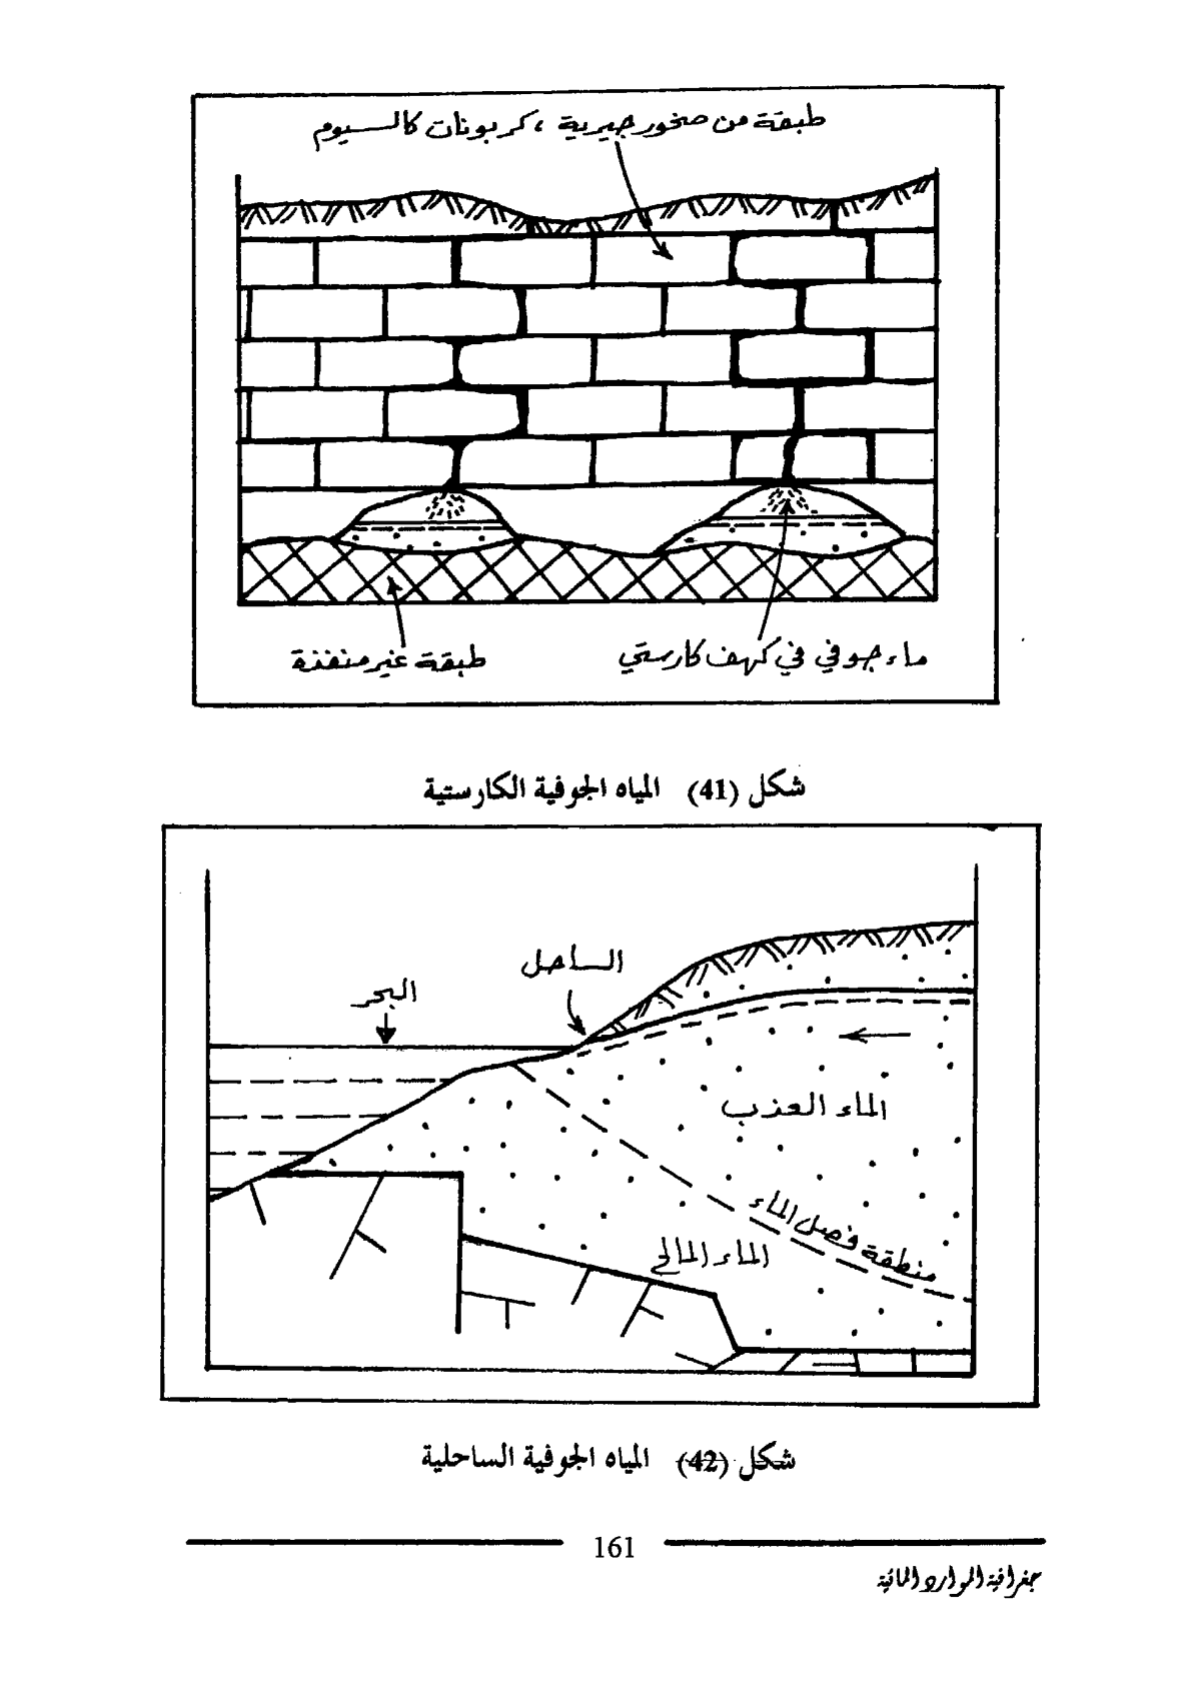 طبقة من صخور جيرية ، كربونات كالسيوم
ماء جوفي في كهف كارستي
طبقة غير منفذة
شكل (41) المياه الجوفية الكارستية
الساحل
البحر
الماء العذب
منطقة فصل الماء
الماء المالح
شكل (42) المياه الجوفية الساحلية
161
جغرافية الموارد المائية